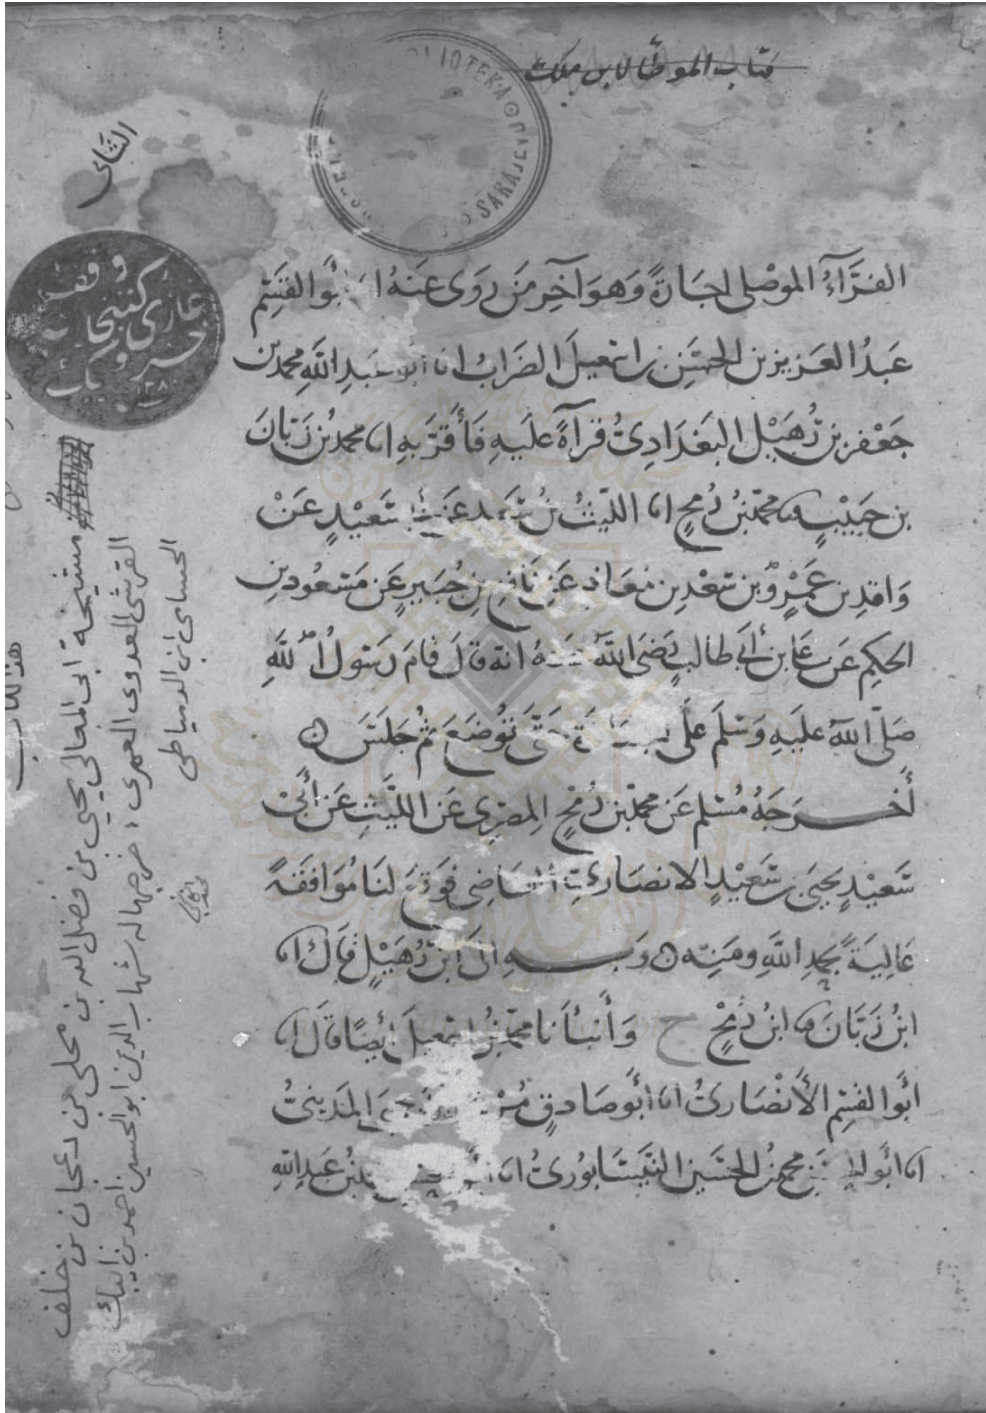 كتاب الموطأ لابن ملك
BIOTEKA
SARAJEV
الثاني
وقف
غازى كتبخانه
خسرو بك
الفَرَّآءُ الموصلى اجازةً وَهوَ آخِر مَن رَوى عَنهُ ابوُ القسِم
عَبدُ العَزيز بن الحسَن بن اسمعيلَ الضرابُ انا ابُو عَبدِ اللهِ محمد بن
جَعْفر بن دُهَيْل البَغدَادِىُّ قرآةً عليهِ فَأَقرَّ بهِ انا محمدُ بن زَبَّانَ
بن حَبيْبٍ نا محمّدُ بنُ رُمحٍ انا الليثُ بنُ سَعدٍ عَن سَعيْدٍ عَنْ
وَاقدِ بن عَمْرٍو بن سَعْدِ بن مُعَاذٍ عَن نَافع بن جُبَيرٍ عَن مَسْعُود بن
الحكم عَن على بن أبى طالبٍ رَضىَ اللهُ عَنهُ انّه قالَ قامَ رَسُولُ اللهِ
صَلّى اللهُ عليهِ وَسَلّم عَلَى جنَازةٍ حَتّى تُوضَعَ ثم جَلسَ
أخرجَهُ مُسْلم عَن محمّد بن رُمْحٍ المِصْرى عَن الليَّثِ عَن أبى
سَعيْدٍ يحيىَ بن سَعيْدٍ الانصَارىّ القاضِى فوقعَ لنَا مُوَافقَةً
عَاليَةً بحمدِ اللهِ ومَنِّهِ وَبهِ الَى ابن دُهَيْلٍ قالَ انا
ابنُ زَبَّانَ نا ابنُ رُمْحٍ ح وَأنبأنا محمّدُ بنُ اسمعيلَ ايضًا قالَ انا
ابُو القسِم الأنْصَارىُّ انا ابُو صَادقٍ مُرْشدُ بنُ يحيىَ المَدينىُّ
انا ابُو الحسَن محمّدُ بنُ الحُسَين النَّيسَابُورىُّ انا ابُو بنُ عَبدِ اللهِ
مشيخة ابى المعالى يحيى بن فضل الله بن محلى بن دعجان بن خلف
القرشى العدوى العمرى خرجها له شهاب الدين ابو الحسين احمد بن ايبك
الحسامى ابن الدمياطى
هذا الكتاب